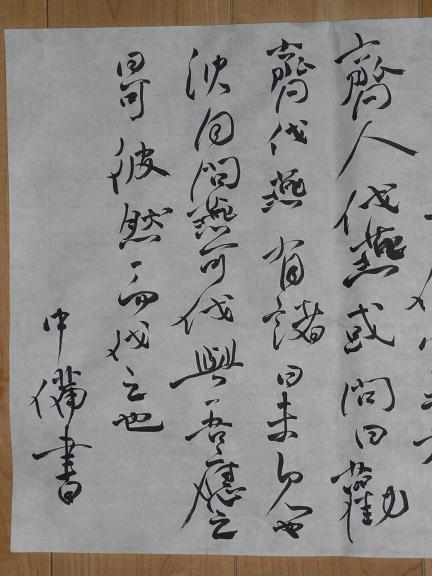 齊人伐燕或問曰勸
齊伐燕有諸曰未也
沈同問燕可伐與吾應之
曰可彼然而伐之也
中備書